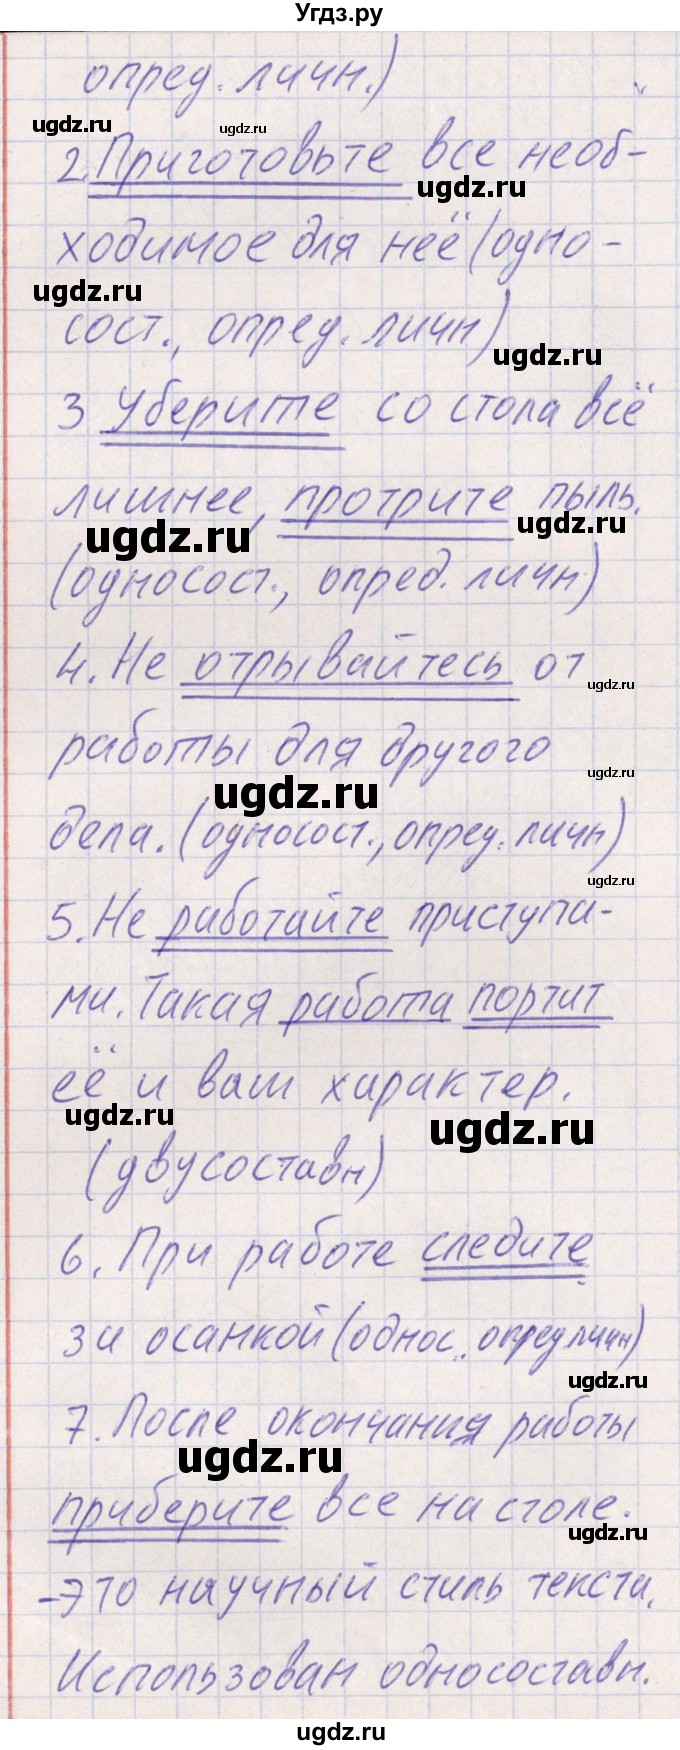 Угдз.ру
опред. личн.)
ugdz.ru ugdz.ru
2. Приготовьте все необ-
ugdz.ru
ходимое для неё (одно-
ugdz.ru
сост., опред. личн)
ugdz.ru
3 Уберите со стола всё
лишнее, протрите пыль.
ugdz.ru ugdz.ru
(односост., опред. личн)
4. Не отрывайтесь от
ugdz.ru
работы для другого
ugdz.ru ugdz.ru
дела. (односост., опред. личн)
ugdz.ru
5. Не работайте приступа-
ми. Такая работа портит
её и ваш характер.
ugdz.ru ugdz.ru
(двусоставн)
6. При работе следите
за осанкой (однос., опред личн)
ugdz.ru
7. После окончания работы
ugdz.ru
приберите все на столе.
ugdz.ru
-Это научный стиль текста.
Использован односоставн.
ugdz.ru